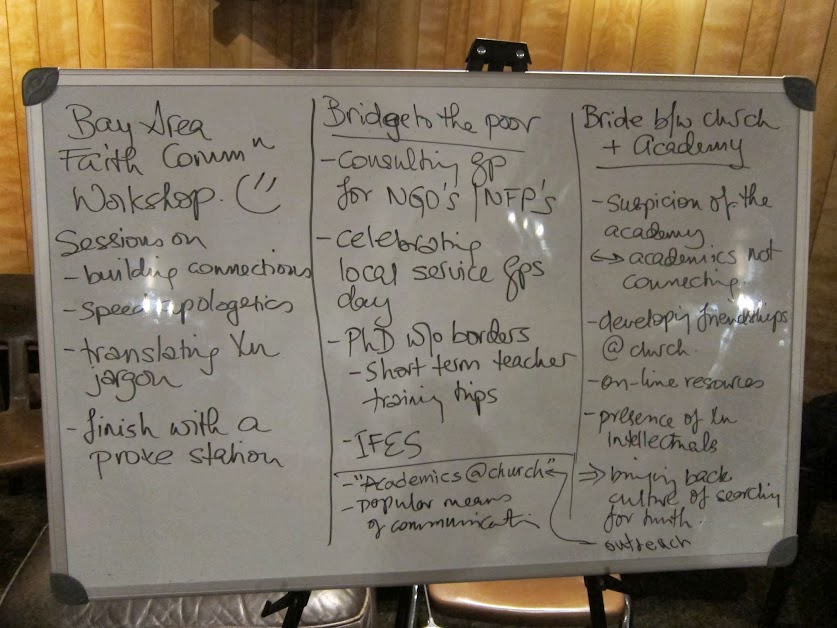 Bay Area
Faith Commⁿ
Workshop.
Sessions on
- building connections
- speed apologetics
- translating Xn
jargon
- finish with a
proxe station
Bridge to the poor
- consulting gp
for NGO's / NFP's
- celebrating
local service gps
day
- PhD w/o borders
- short term teacher
training trips
- IFES
- "Academics@church"
- popular means
of communicati
Bride b/w church
+ academy
- suspicion of the
academy
↔ academics not
connecting.
- developing friendships
@ church.
- on-line resources
- presence of Xn
intellectuals
⇒ bringing back
culture of searching
for truth.
- outreach